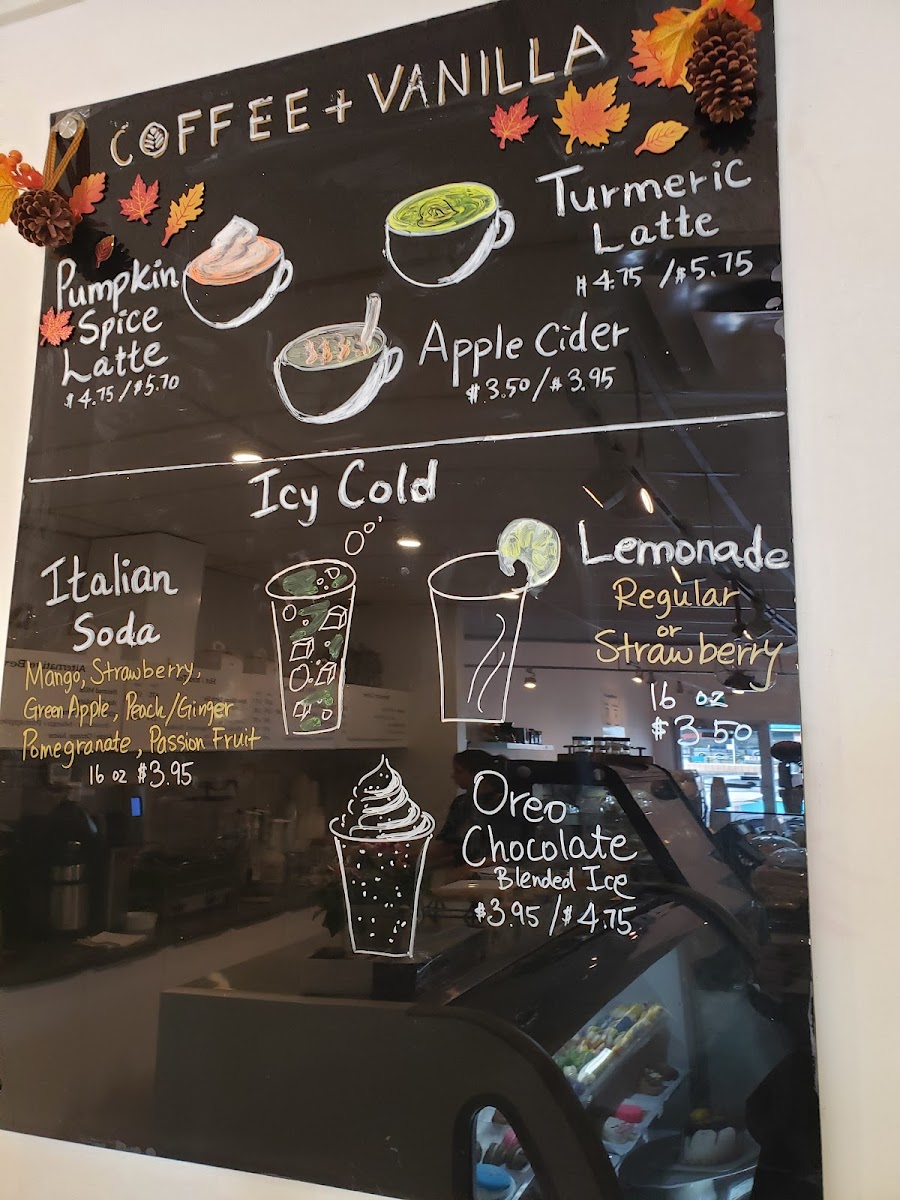 COFFEE + VANILLA
Turmeric
Latte
$4.75 / $5.75
Pumpkin
Spice
Latte
$4.75 / $5.70
Apple Cider
$3.50 / $3.95
Icy Cold
Italian
Soda
Mango, Strawberry,
Green Apple, Peach/Ginger
Pomegranate, Passion Fruit
16 oz $3.95
Lemonade
Regular
or
Strawberry
16 oz
$3.50
Oreo
Chocolate
Blended Ice
$3.95 / $4.75